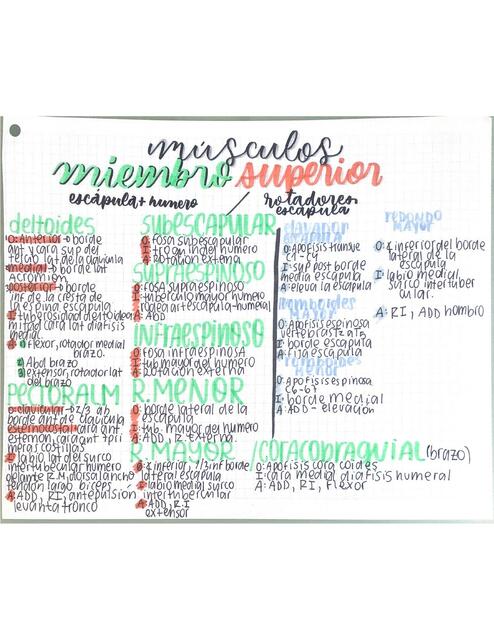 músculos
miembro superior
escápula + humero
rotadores escapula
deltoides
O: Anterior → borde
ant y cara sup del
tercio lat de la clavicula
medial → borde lat
acromion
posterior → borde
inf de la cresta de
la espina escapula
I: tuberosidad deltoidea
mitad cara lat diafisis
medial.
A: 1) flexor, rotador medial
brazo.
2) Abd brazo
3) extensor, rotador lat
del brazo
PECTORAL M
O: clavicular → 2/3
borde ant de clavicula
esternocostal → cara ant
esternon, cara ant 7 pri
meras costillas
I: labio lat del surco
intertubecular humero
delante R.M, dorsal ancho
tendon largo biceps
A: ADD, RI, antepulsion,
levanta tronco
SUBESCAPULAR
O: fosa subescapular
I: troquin del humero
A: Rotación externa
SUPRAESPINOSO
O: fosa supraespinosa
I: tuberculo mayor humero
A: ABD
INFRAESPINOSO
O: fosa infraespinosa
I: tub mayor del humero
A: Rotación externa
R. MENOR
O: borde lateral de la
escápula
I: tub. mayor del humero
A: ADD, R. Externa.
R. MAYOR
O: á inferior, 1/3 inf borde
lateral escapula
I: labio medial surco
intertubercular
A: ADD, R.I
extensor
/CORACOBRAQUIAL (brazo)
O: Apofisis coracoides
I: cara medial diafisis humeral
A: ADD, RI, Flexor
elevador
escapula
O: Apofisis transve
C1-C4
I: sup post borde
media escapula
A: eleva la escapula
Romboides
MAYOR
O: Apofisis espinosa
vertebras T2 a T5
I: borde escapula
A: fija escapula
romboides
menor
O: Apofisis espinosa
C6-C7
I: borde medial
A: ADD - elevación
REDONDO
MAYOR
O: á inferior del borde
lateral de la
escapula
I: labio medial,
surco intertuber
cular.
A: RI, ADD hombro